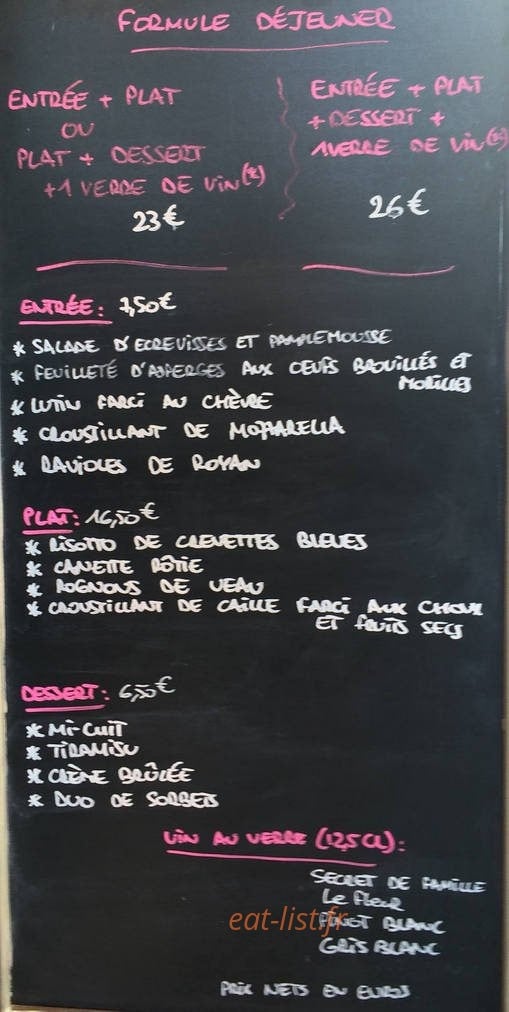 FORMULE DÉJEUNER
ENTRÉE + PLAT
OU
PLAT + DESSERT
+ 1 VERRE DE VIN (*)
23€
ENTRÉE + PLAT
+ DESSERT +
1 VERRE DE VIN (*)
26€
ENTRÉE : 7,50€
* SALADE D'ECREVISSES ET PAMPLEMOUSSE
* FEUILLETÉ D'ASPERGES AUX OEUFS BROUILLÉS ET
MORILLES
* LUTIN FARCI AU CHÈVRE
* CROUSTILLANT DE MOZZARELLA
* RAVIOLES DE ROYAN
PLAT : 16,50€
* RISOTTO DE CREVETTES BLEUES
* CANETTE RÔTIE
* ROGNONS DE VEAU
* CROUSTILLANT DE CAILLE FARCI AUX CHOUX
ET FRUITS SECS
DESSERT : 6,50€
* MI-CUIT
* TIRAMISU
* CRÈME BRÛLÉE
* DUO DE SORBETS
VIN AU VERRE (12,5 CL) :
SECRET DE FAMILLE
Le Fleur
PINOT BLANC
GRIS BLANC
eat-list.fr
PRIX NETS EN EUROS